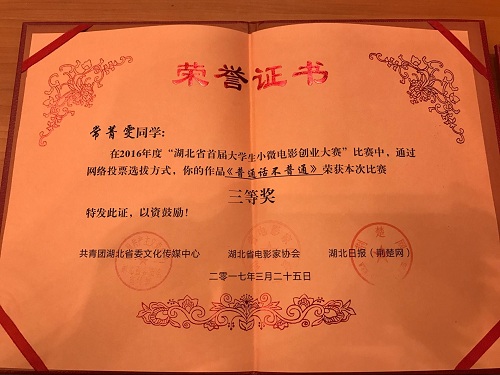 荣誉证书
常菁雯同学：
在2016年度“湖北省首届大学生小微电影创业大赛”比赛中，通过
网络投票选拔方式，你的作品《普通话不普通》荣获本次比赛
三等奖
特发此证，以资鼓励！
共青团湖北省委文化传媒中心 湖北省电影家协会 湖北日报（荆楚网）
二〇一七年三月二十五日